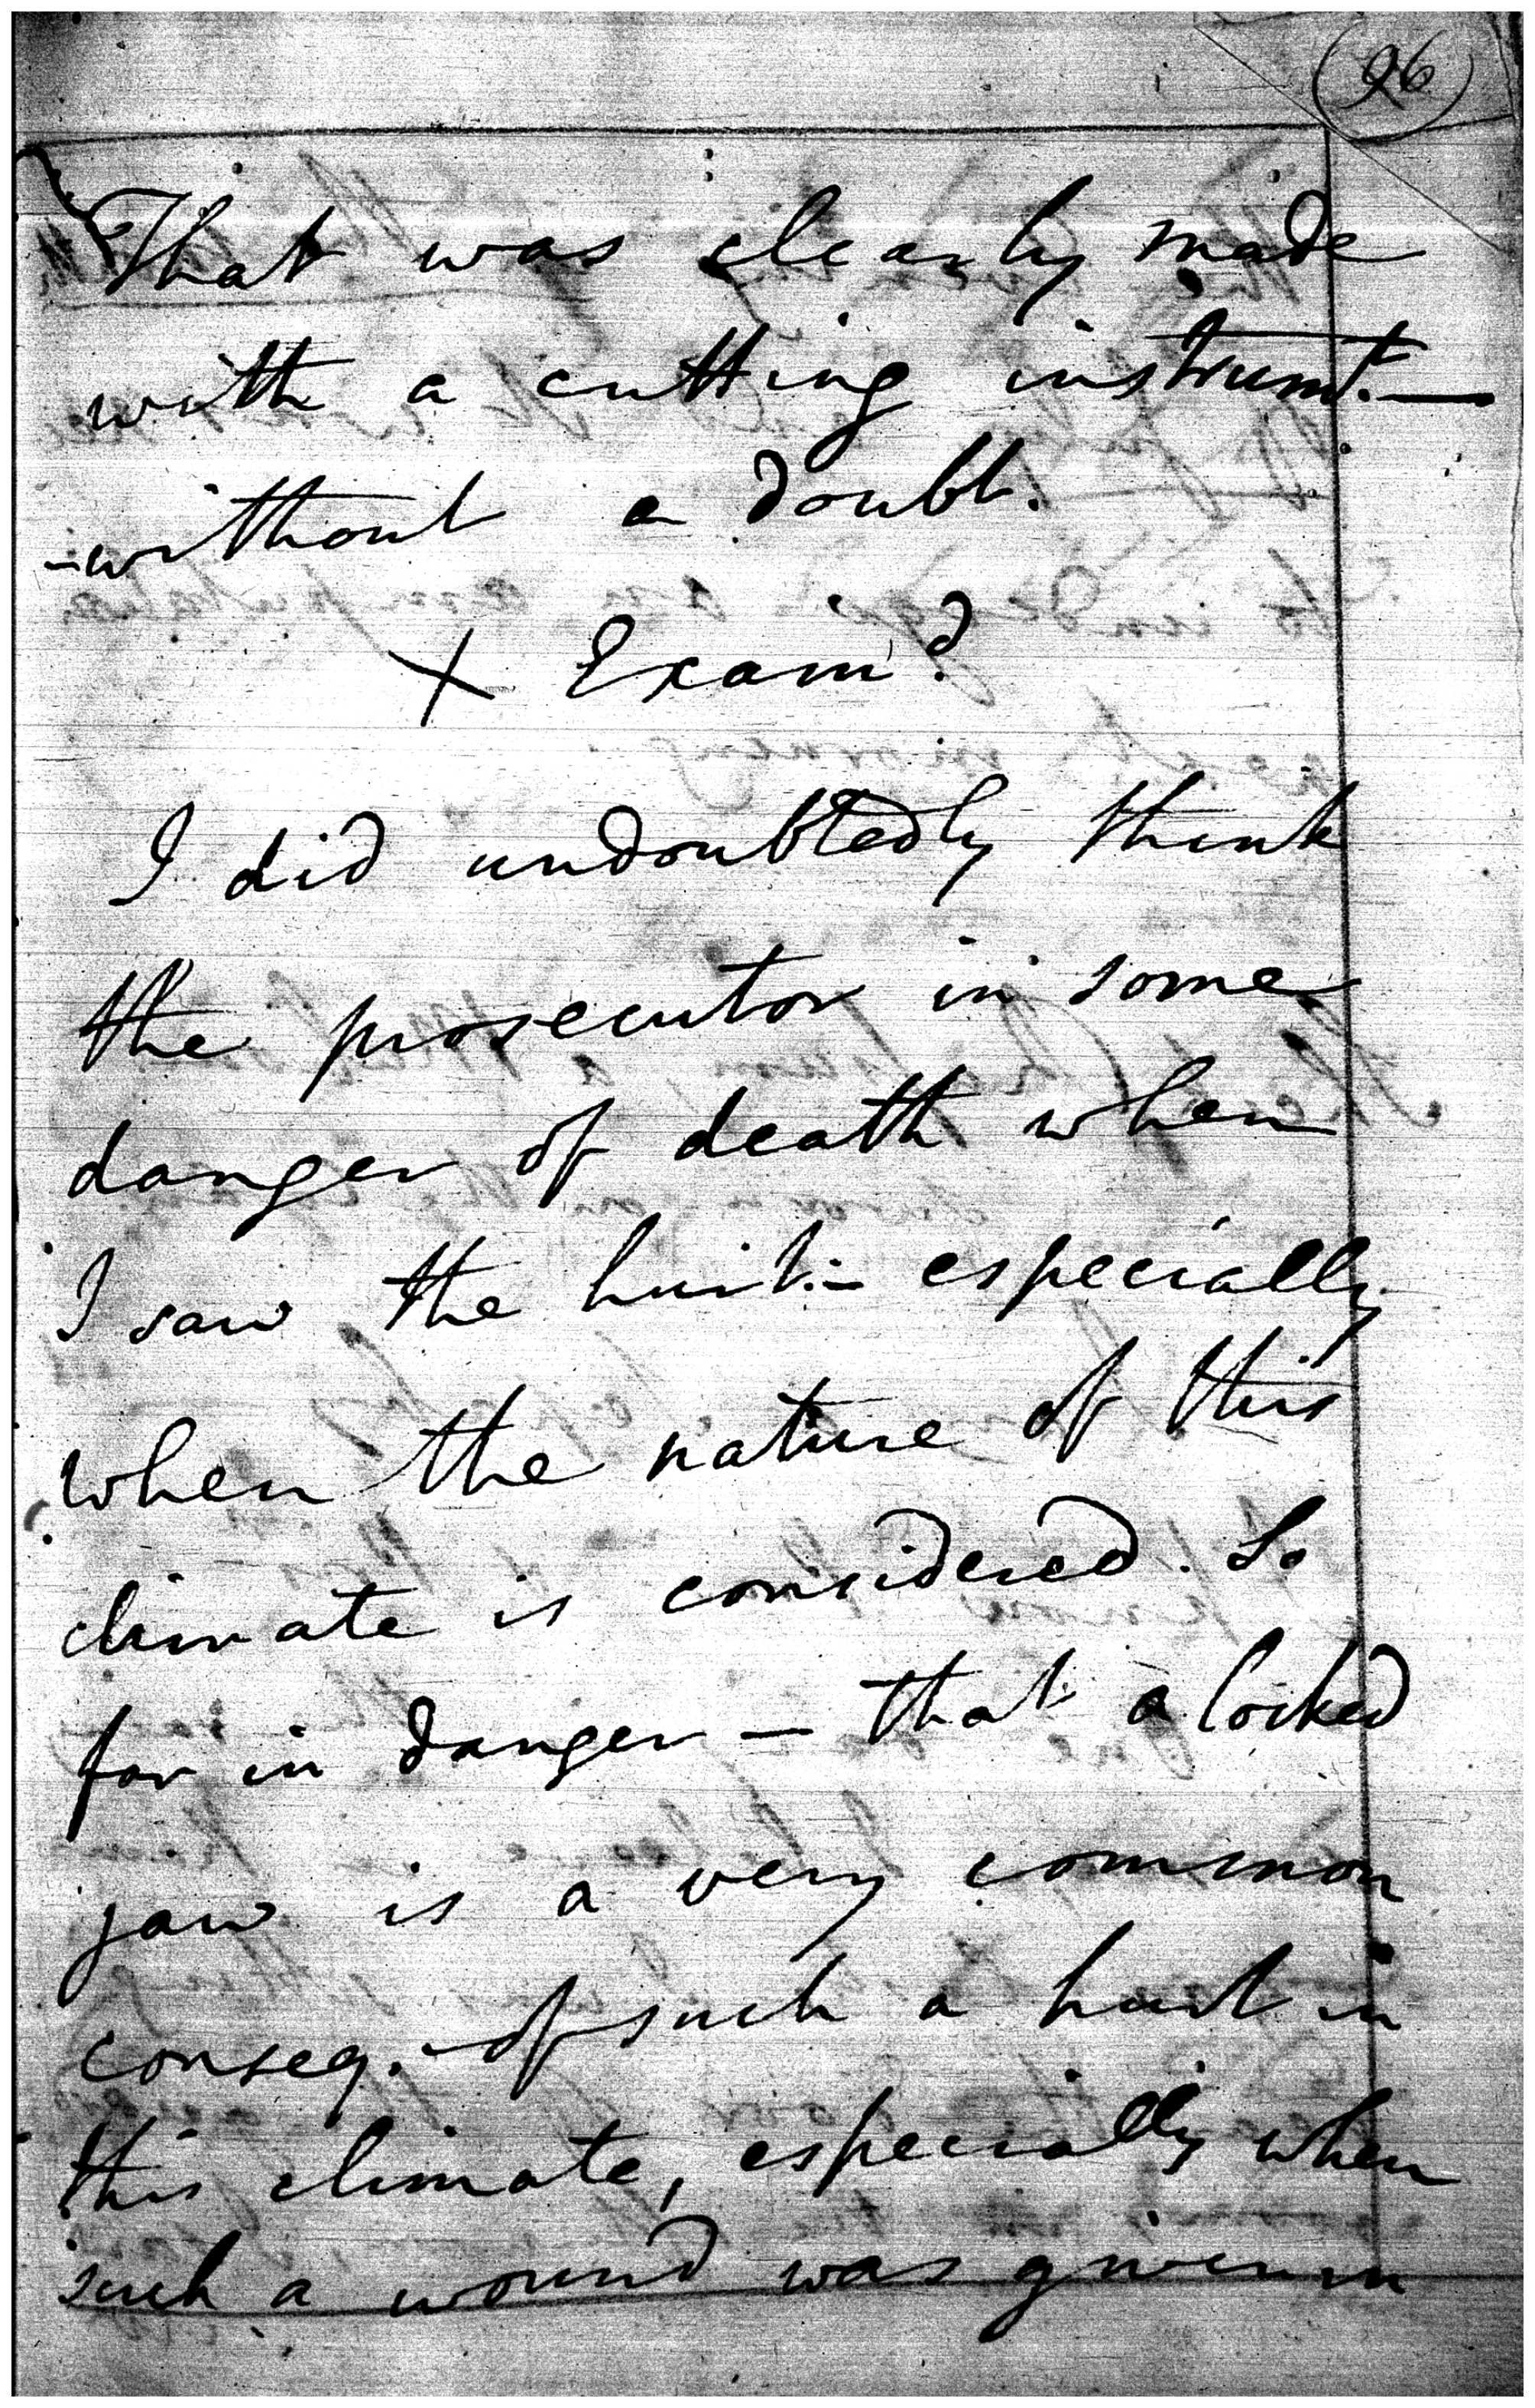 26
That was clearly made
with a cutting instrumt. —
- without a doubt.
X Exam.d
I did undoubtedly think
the prosecutor in some
danger of death when
I saw the hurt: - especially
when the nature of this
climate is considered. So
far in danger - that a locked
jaw is a very common
conseq. of such a hurt in
this climate, especially when
such a wound was given in